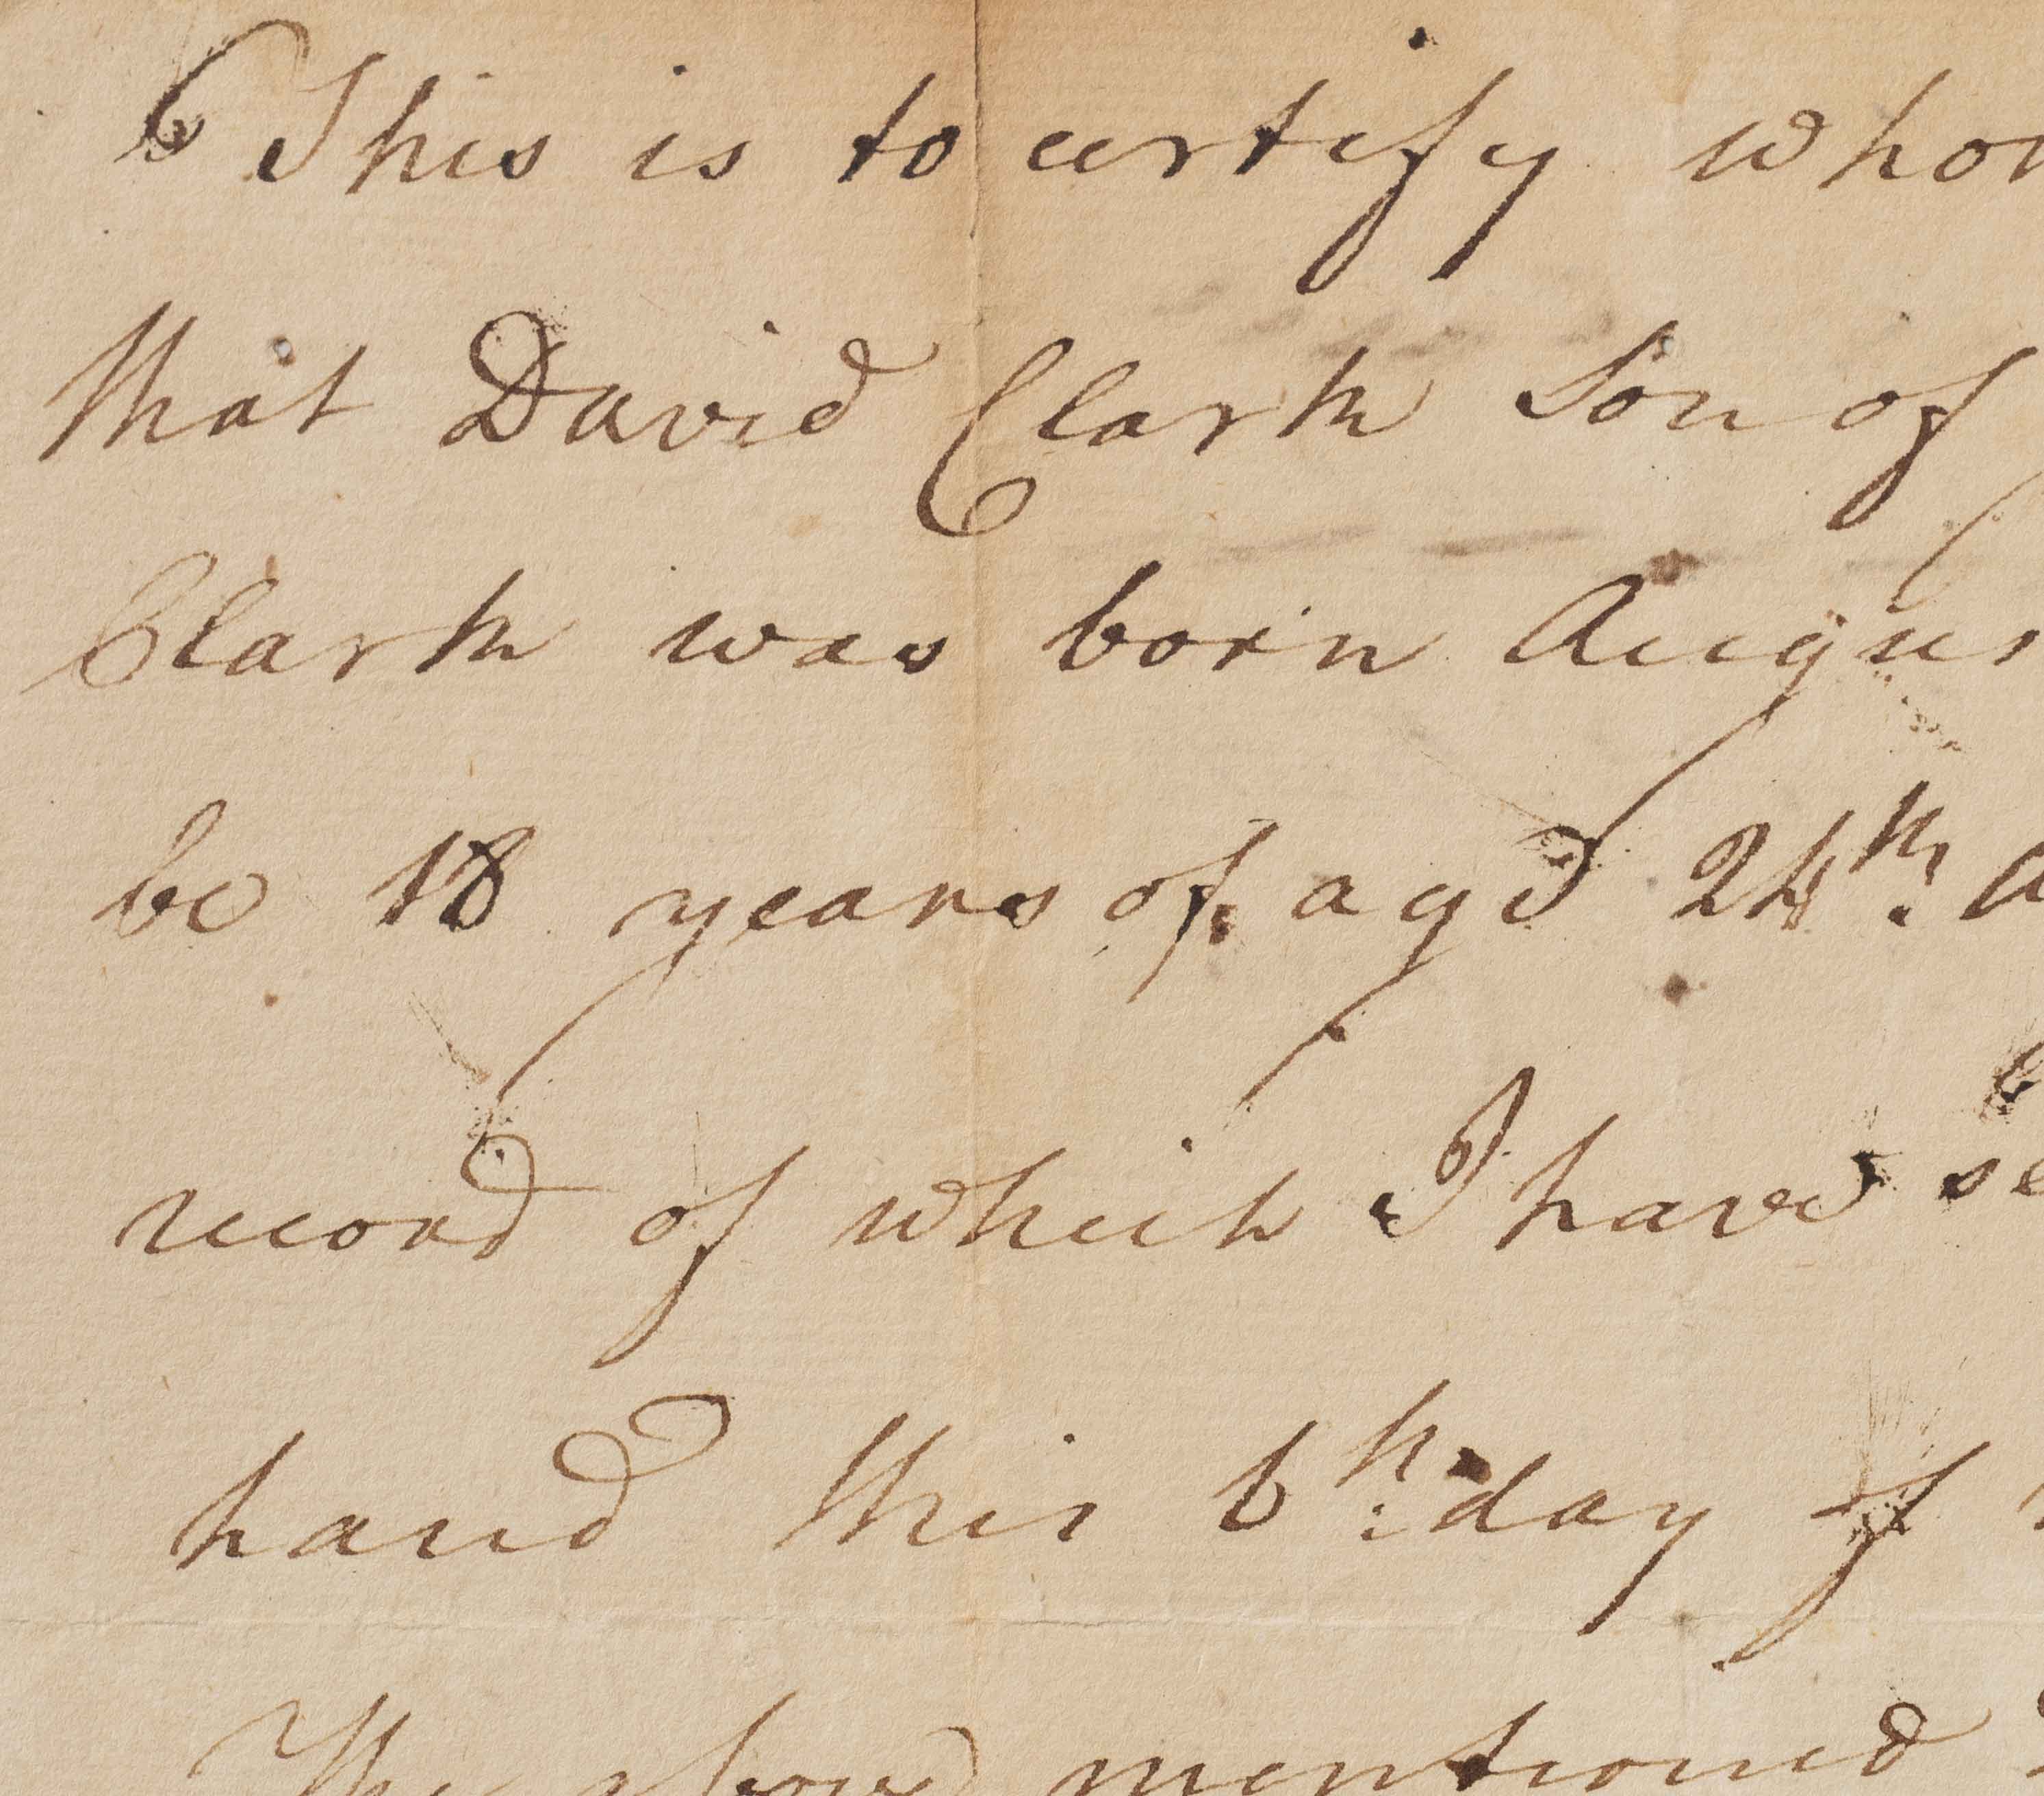 This is to certify whom
that David Clark Son of
Clark was born Augus
be 18 years of age 24th. A
record of which I have se
hand this 6th. day of
The above mentioned